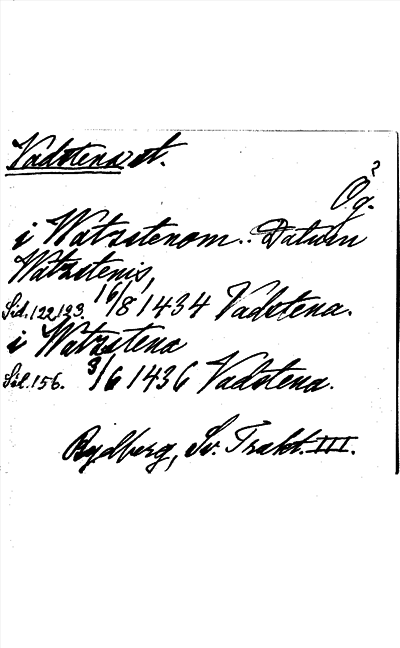 Vadstena st.
Ög.
?
i Watzstenom. Datum
Watzstenis,
Sid. 122, 123. 16/8 1434 Vadstena.
i Watzstena
Sid. 156. 3/6 1436 Vadstena.
Rydberg, Sv. Trakt. III.